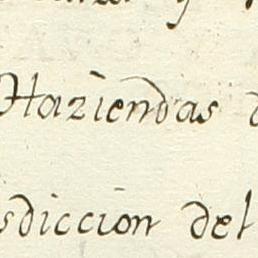 y
Haziendas d
sdiccion del